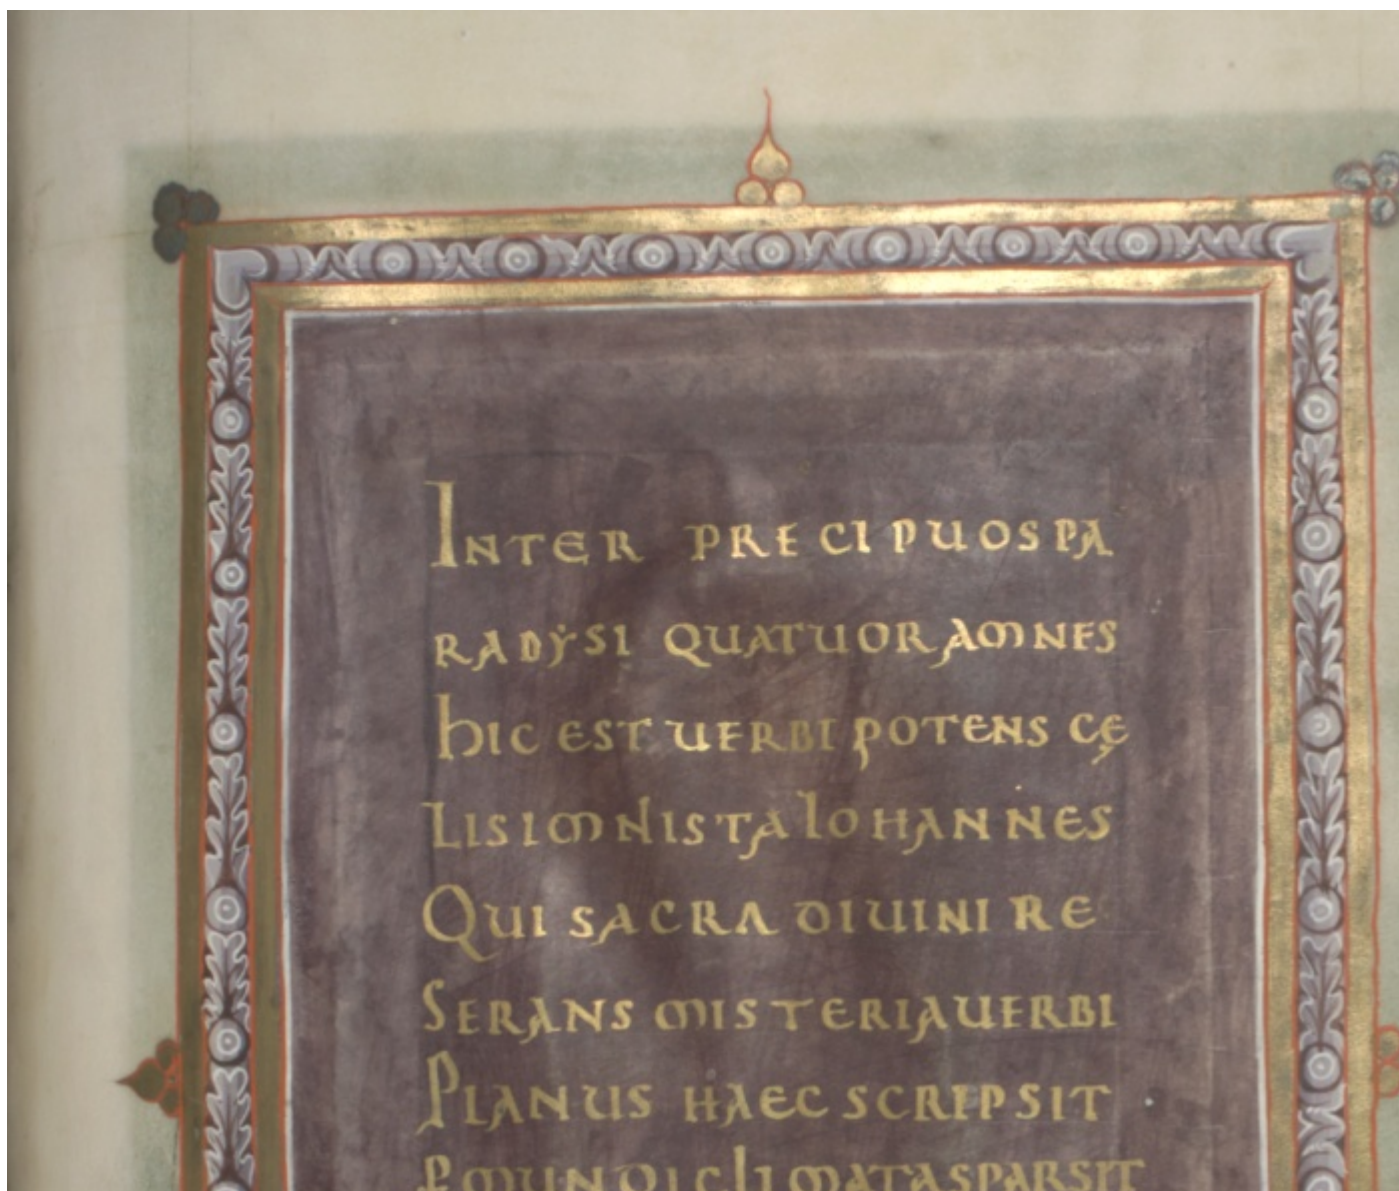 INTER PRECIPUOS PA
RADẎSI QUATUOR AMNES
hIC EST UERBI POTENS CĘ
LIS IMNISTA IOHANNES
QUI SACRA DIUINI RE
SERANS MISTERIA UERBI
PLANUS HAEC SCRIPSIT
& MUNDI CLIMATA SPARSIT